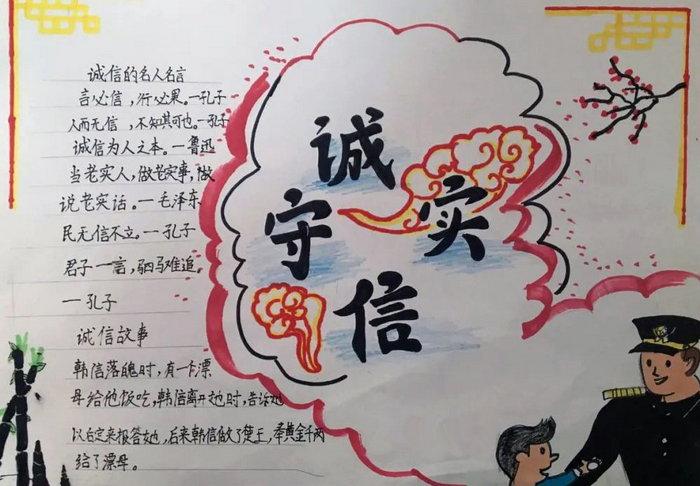 诚信的名人名言
言必信，行必果。—孔子
人而无信，不知其可也。—孔子
诚信为人之本。—鲁迅
当老实人，做老实事，做
说老实话。—毛泽东
民无信不立。—孔子
君子一言，驷马难追。
—孔子
诚信故事
韩信落魄时，有一个漂
母给他饭吃，韩信离开她时，告诉她
以后定来报答她，后来韩信做了楚王，奉黄金千两
给了漂母。
诚
守
实
信